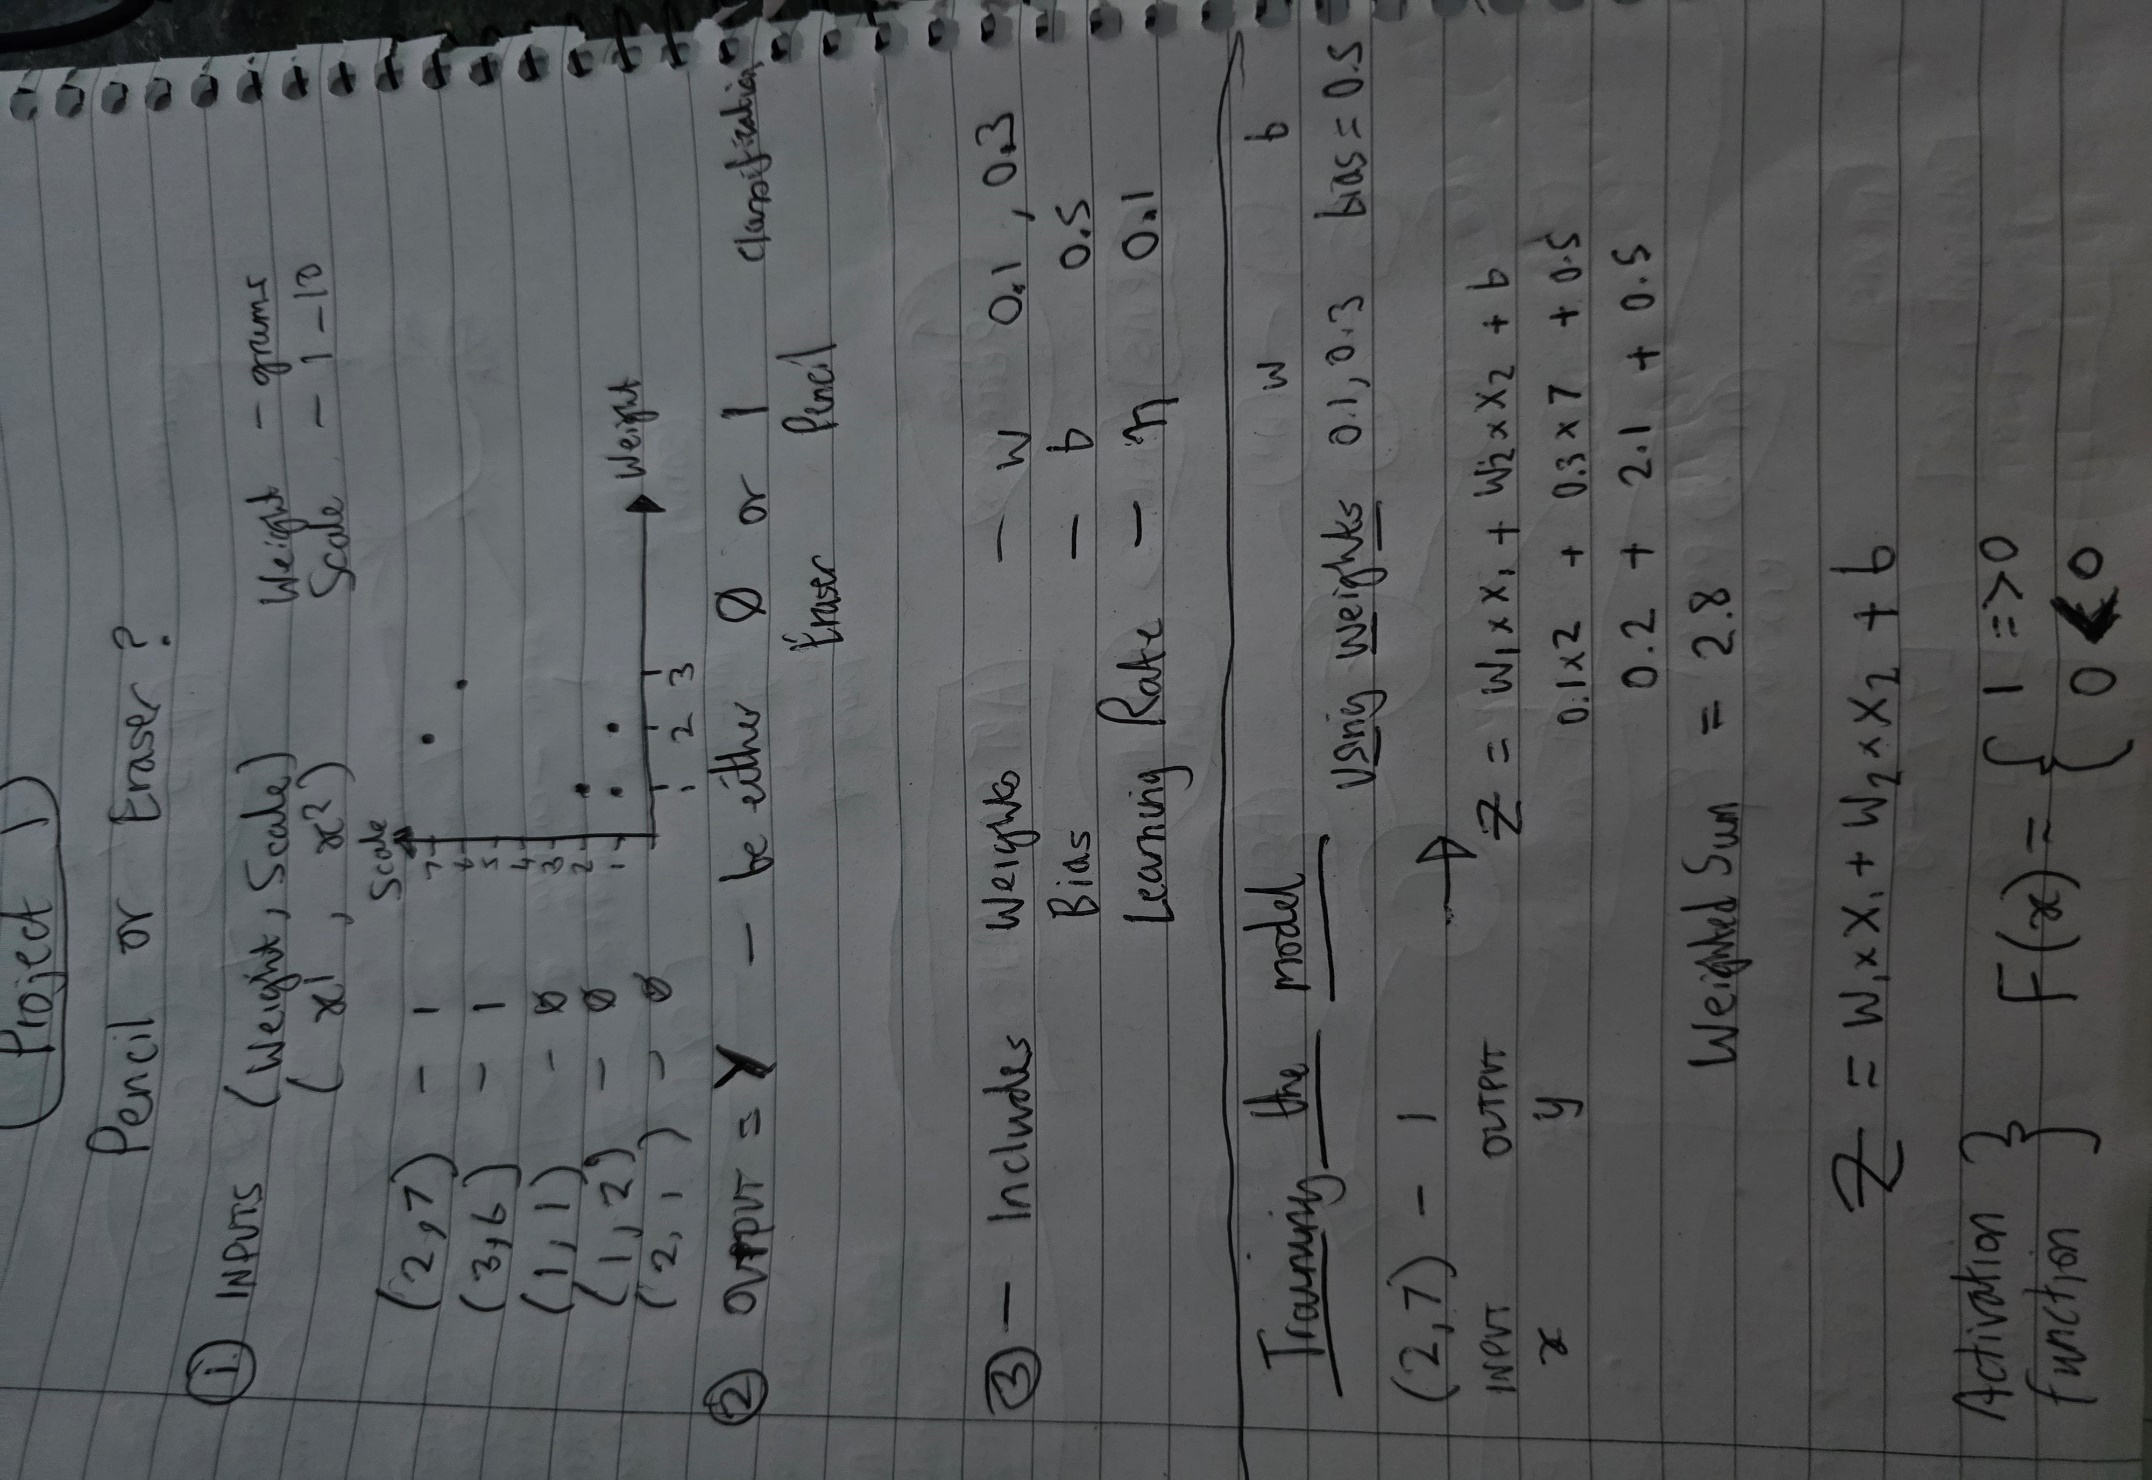 Project 1
Pencil or Eraser?
① INPUTS (Weight, Scale) Weight - grams
(x1, x2) Scale - 1-10
(2,7) - 1
(3,6) - 1
(1,1) - Ø
(1,2) - Ø
(2,1) - Ø
Scale
7
6
5
4
3
2
1
1 2 3
Weight
② OUTPUT = Y - be either Ø or 1 classification
Eraser Pencil
③ - Includes Weights - w 0.1, 0.3
Bias - b 0.5
Learning Rate - η 0.1
Training the model w b
Using weights 0.1, 0.3 bias = 0.5
(2,7) - 1 →
INPUT OUTPUT Z = W1 x X1 + W2 x X2 + b
x y 0.1x2 + 0.3x7 + 0.5
0.2 + 2.1 + 0.5
Weighted Sum = 2.8
Z = W1 x X1 + W2 x X2 + b
Activation } F(x) = { 1 => 0
function } { 0 < 0